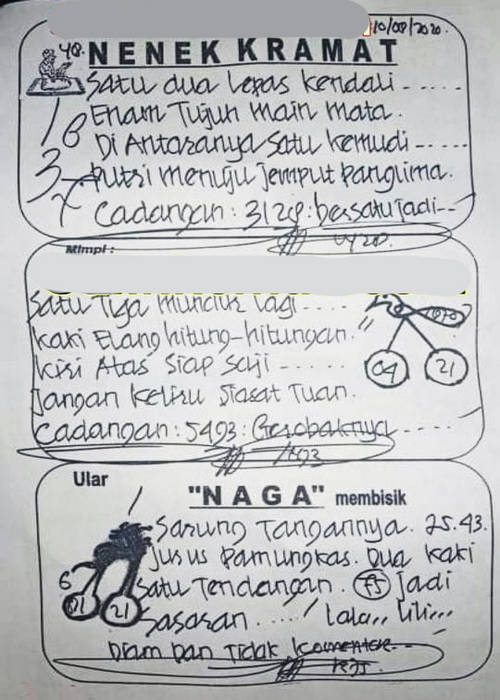 10/08/2020.
48. NENEK KRAMAT
Satu dua lepas kendali.....
Enam Tujuh main mata.
Di Antaranya satu kemudi.....
Putri menuju jemput panglima.
Cadangan: 3128: bersatu jadi..
Mimpi :
Satu Tiga muncul lagi ....
kaki Elang hitung-hitungan."
Kiri Atas siap saji ......
04 21
Jangan keliru siasat Tuan.
Cadangan: 5493: Gerobaknya.....
Ular
"NAGA" membisik
Sarung Tangannya. 25.43.
Jusus Pamungkas. Dua kaki
6
Satu Tendangan. jadi
01 21
Sasaran ..... Lala,, Lili,,,
Diam Dan Tidak komentar..